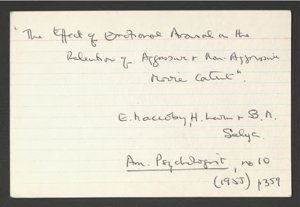 "The Effect of Emotional Arousal on the
Retention of Aggressive & Non-Aggressive
Movie Content".
E. Maccoby, H. Levin & B. M.
Selya.
Am. Psychologist, no 10
(1955) p359